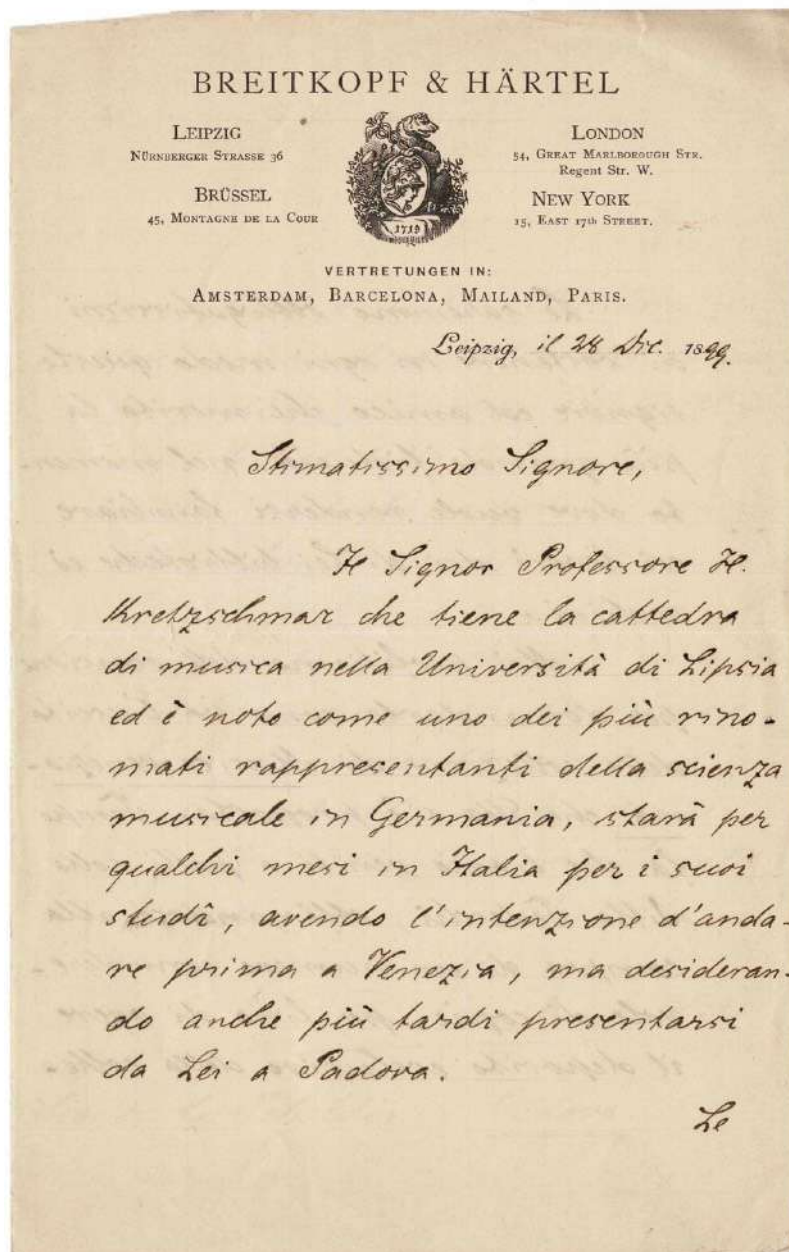 BREITKOPF & HÄRTEL
LEIPZIG
NÜRNBERGER STRASSE 36
BRÜSSEL
45, MONTAGNE DE LA COUR
1719
LONDON
54, GREAT MARLBOROUGH STR.
Regent Str. W.
NEW YORK
15, EAST 17th STREET.
VERTRETUNGEN IN:
AMSTERDAM, BARCELONA, MAILAND, PARIS.
Leipzig, il 28 Dic. 1899.
Stimatissimo Signore,
Il Signor Professore H.
Kretzschmar che tiene la cattedra
di musica nella Università di Lipsia
ed è noto come uno dei più rino-
mati rappresentanti della scienza
musicale in Germania, starà per
qualchi mesi in Italia per i suoi
studî, avendo l'intenzione d'anda-
re prima a Venezia, ma desideran-
do anche più tardi presentarsi
da Lei a Padova.
Le